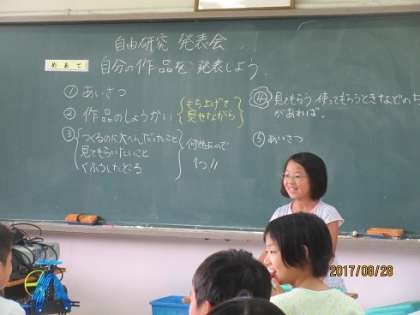 自由研究 発表会
めあて
自分の作品を発表しよう。
① あいさつ
② 作品のしょうかい
もち上げて
見せながら
③ つくるのに大へんだったこと
見てもらいたいこと
くふうしたところ
何せつめいで
1つ
④ 見てもらう 使ってもらうときなどの
があれば。
⑤ あいさつ
2017/08/28